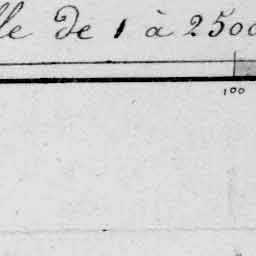 lle de 1 à 2500
100